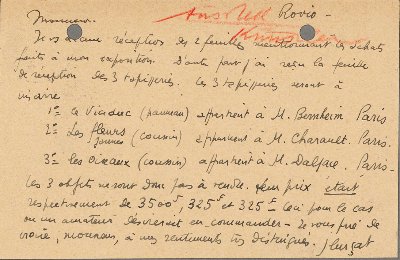 Monsieur. Rovio -
Je vs accuse réception des 2 feuilles mentionnant les achats
faits à mon exposition. D'autre part j'ai reçu la feuille
de réception des 3 tapisseries. Les 3 tapisseries seront à
1º- Le Viaduc (panneau) appartient à M. Bernheim Paris
2º- Les fleurs jaunes (coussin) appartient à M. Charault. Paris.
3º- les oiseaux (coussin) appartient à M. Dalpace. Paris-
Les 3 objets ne sont donc pas à vendre. Leur prix était
respectivement de 3500 f, 325 f et 325 f - ceci pour le cas
ou un amateur désirerait en commander - Je vous prie de
croire, monsieur, à mes sentiments très distingués. J Lurçat